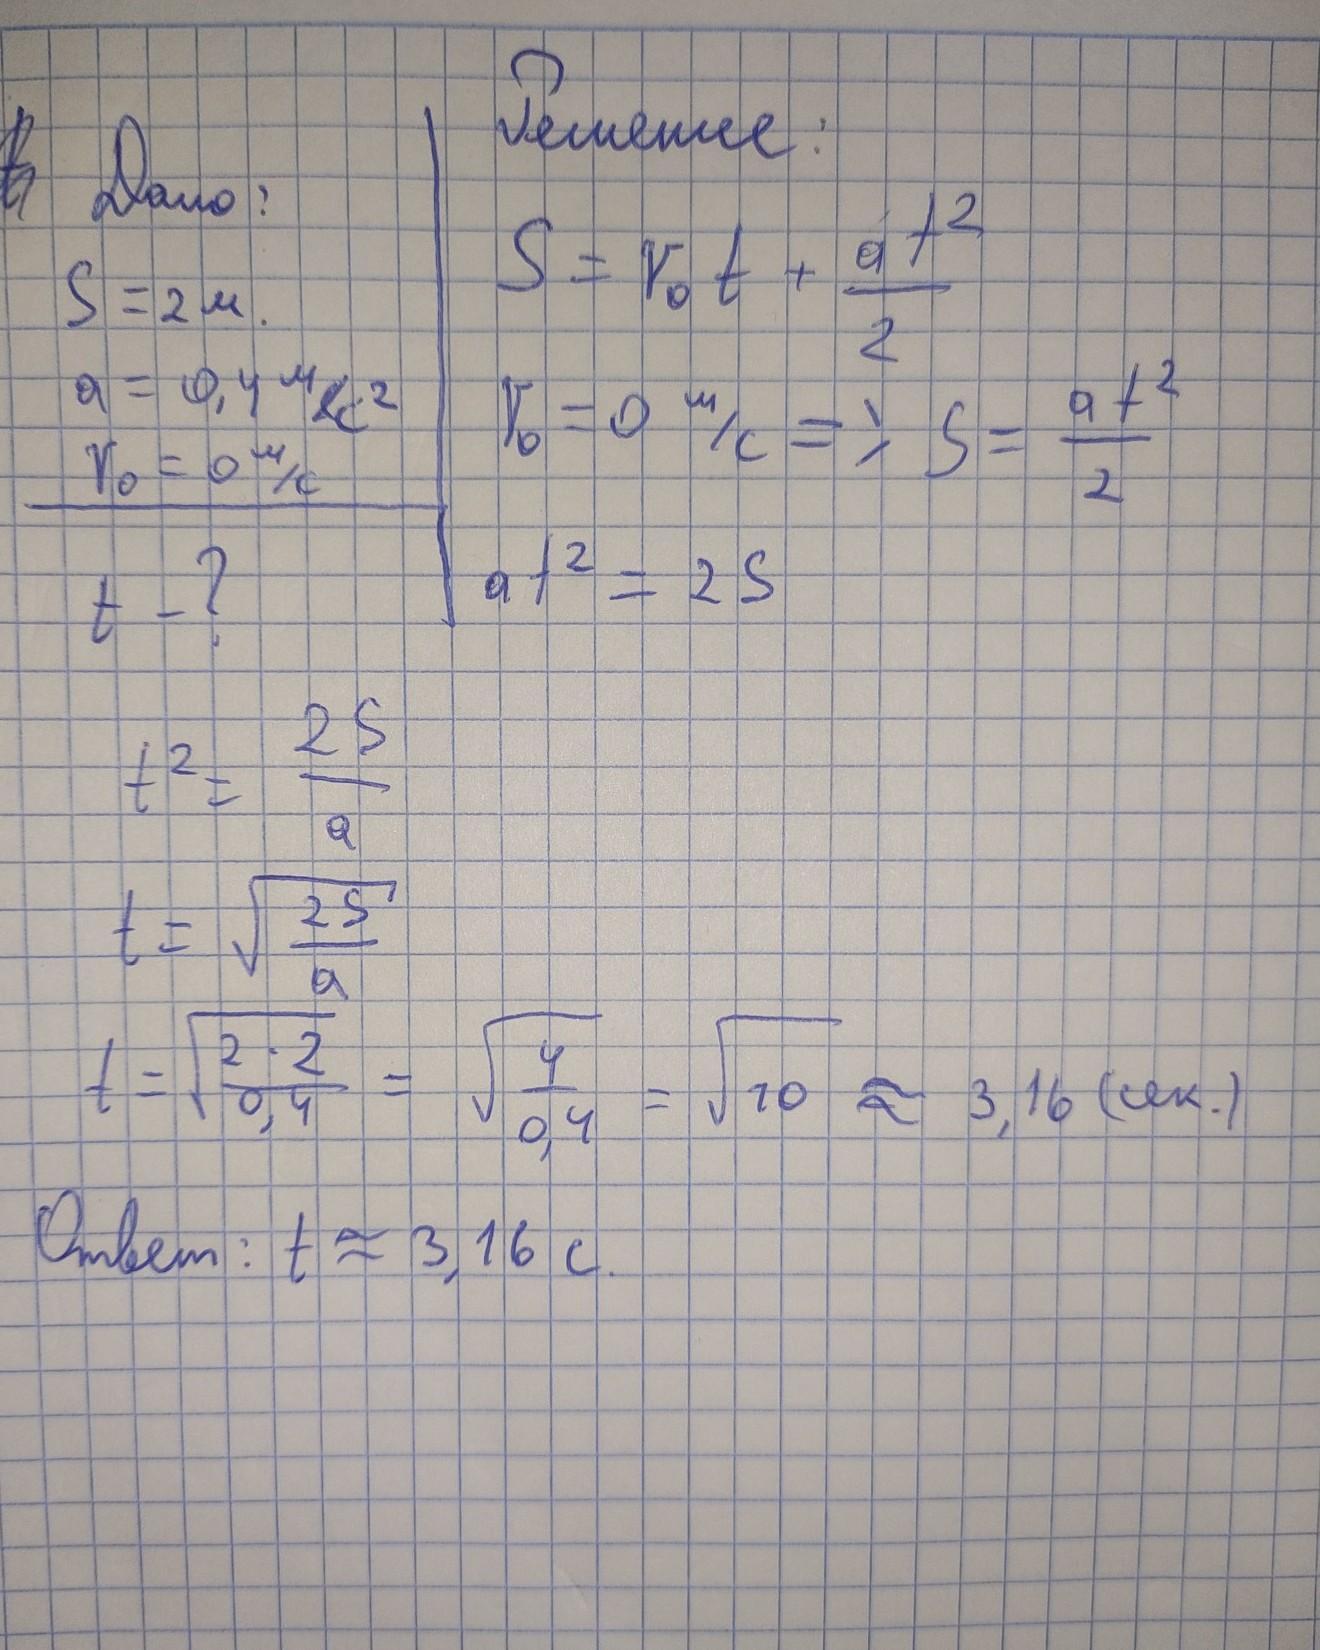 Дано:
S = 2 м.
a = 0,4 м/с²
V₀ = 0 м/с
t - ?
Решение:
S = V₀ t + at²/2
V₀ = 0 м/с => S = at²/2
at² = 2S
t² = 2S/a
t = √(2S/a)
t = √(2·2/0,4) = √(4/0,4) = √10 ≈ 3,16 (сек.)
Ответ: t ≈ 3,16 с.